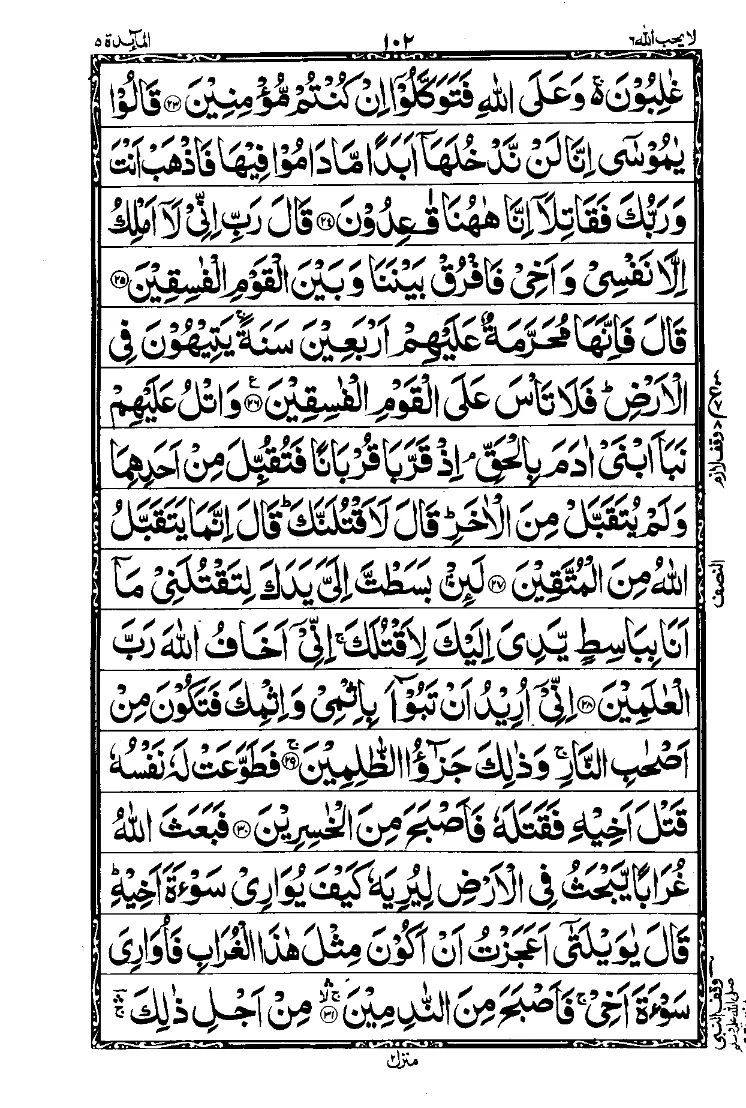 لا يحب الله ٦
١٠٢
المآئدة ٥
غٰلِبُوْنَ ۚ۬ وَعَلَى اللّٰهِ فَتَوَكَّلُوْۤا اِنْ كُنْتُمْ مُّؤْمِنِيْنَ ﴿۲۳﴾ قَالُوْا
يٰمُوْسٰۤى اِنَّا لَنْ نَّدْخُلَهَاۤ اَبَدًا مَّا دَامُوْا فِيْهَا فَاذْهَبْ اَنْتَ
وَرَبُّكَ فَقَاتِلَاۤ اِنَّا هٰهُنَا قٰعِدُوْنَ ﴿۲۴﴾ قَالَ رَبِّ اِنِّيْ لَاۤ اَمْلِكُ
اِلَّا نَفْسِيْ وَاَخِيْ فَافْرُقْ بَيْنَنَا وَبَيْنَ الْقَوْمِ الْفٰسِقِيْنَ ﴿۲۵﴾
قَالَ فَاِنَّهَا مُحَرَّمَةٌ عَلَيْهِمْ اَرْبَعِيْنَ سَنَةً ۚ يَتِيْهُوْنَ فِي
الْاَرْضِ ؕ فَلَا تَاْسَ عَلَى الْقَوْمِ الْفٰسِقِيْنَ ﴿۲۶﴾ ع وَاتْلُ عَلَيْهِمْ
نَبَاَ ابْنَيْ اٰدَمَ بِالْحَقِّ ۘ اِذْ قَرَّبَا قُرْبَانًا فَتُقُبِّلَ مِنْ اَحَدِهِمَا
وَلَمْ يُتَقَبَّلْ مِنَ الْاٰخَرِ ؕ قَالَ لَاَقْتُلَنَّكَ ؕ قَالَ اِنَّمَا يَتَقَبَّلُ
اللّٰهُ مِنَ الْمُتَّقِيْنَ ﴿۲۷﴾ لَئِنْۢ بَسَطْتَّ اِلَيَّ يَدَكَ لِتَقْتُلَنِيْ مَاۤ
اَنَا بِبَاسِطٍ يَّدِيَ اِلَيْكَ لِاَقْتُلَكَ ۚ اِنِّيْۤ اَخَافُ اللّٰهَ رَبَّ
الْعٰلَمِيْنَ ﴿۲۸﴾ اِنِّيْۤ اُرِيْدُ اَنْ تَبُوْٓاَ بِاِثْمِيْ وَاِثْمِكَ فَتَكُوْنَ مِنْ
اَصْحٰبِ النَّارِ ۚ وَذٰلِكَ جَزٰٓؤُا الظّٰلِمِيْنَ ﴿۲۹﴾ ۚ فَطَوَّعَتْ لَهٗ نَفْسُهٗ
قَتْلَ اَخِيْهِ فَقَتَلَهٗ فَاَصْبَحَ مِنَ الْخٰسِرِيْنَ ﴿۳۰﴾ فَبَعَثَ اللّٰهُ
غُرَابًا يَّبْحَثُ فِي الْاَرْضِ لِيُرِيَهٗ كَيْفَ يُوَارِيْ سَوْءَةَ اَخِيْهِ ؕ
قَالَ يٰوَيْلَتٰۤى اَعَجَزْتُ اَنْ اَكُوْنَ مِثْلَ هٰذَا الْغُرَابِ فَاُوَارِيَ
سَوْءَةَ اَخِيْ ۚ فَاَصْبَحَ مِنَ النّٰدِمِيْنَ ﴿۳۱﴾ مِنْ اَجْلِ ذٰلِكَ
وقف لازم
النصف
وقف النبي صلى الله عليه وسلم
منزل ٢